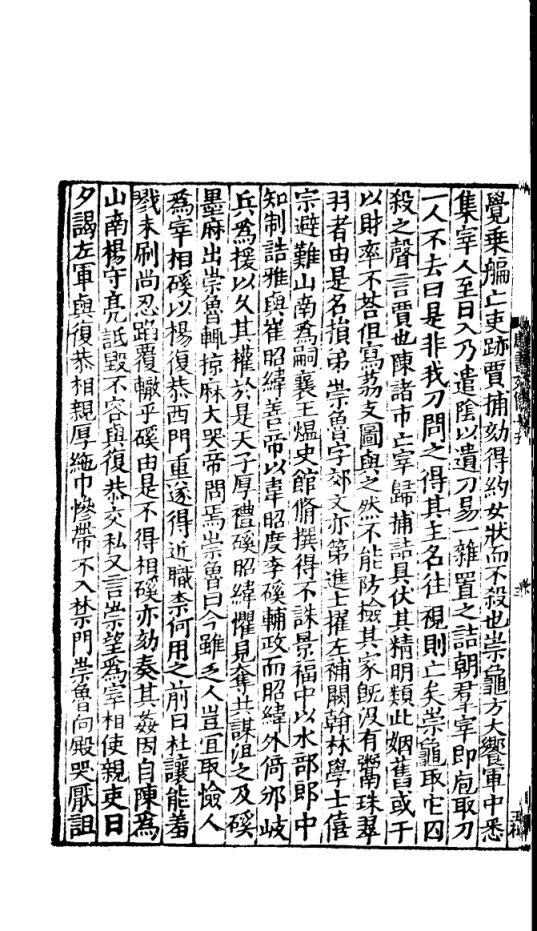 覺乗艑亡吏跡賈捕劾得約女狀而不殺也崇龜方大饗軍中悉
集宰人至日入乃遣隂以遺刀易一雜置之詰朝羣宰即庖取刀
一人不去曰是非我刀問之得其主名往視則亡矣崇龜取它囚
殺之聲言賈也陳諸市亡宰歸捕詰具伏其精明類此姻舊或干
以財率不荅但寫荔支圖與之然不能防檢其家旣没有鬻珠翠
羽者由是名損弟崇魯字郊文亦第進士擢左補闕翰林學士僖
宗避難山南爲嗣襄王熅史館脩撰得不誅景福中以水部郎中
知制誥雅與崔昭緯善帝以韋昭度李磎輔政而昭緯外倚邠岐
兵爲援以久其權於是天子厚禮磎昭緯懼見奪共謀沮之及磎
墨麻出崇魯輒掠麻大哭帝問焉崇魯曰今雖乏人豈宜取憸人
爲宰相磎以楊復恭西門重遂得近職柰何用之前日杜讓能羞
戮未刷尚忍蹈覆轍乎磎由是不得相磎亦劾奏其姦因自陳爲
山南楊守亮詆毁不容與復恭交私又言崇望爲宰相使親吏日
夕謁左軍與復恭相親厚絁巾慘帶不入禁門崇魯向殿哭厭詛